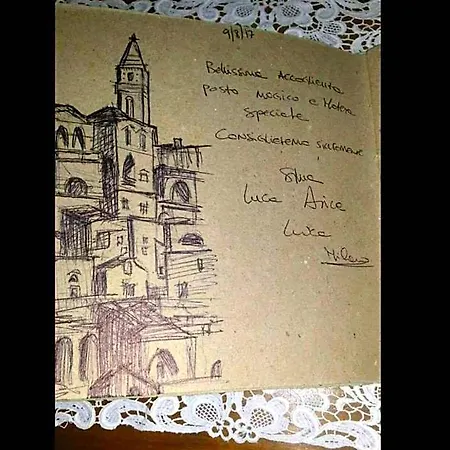 9/8/17
Bellissima Accoglienza
posto magico e Matera
speciale
Consiglieremo sicuramente
Silvia
Luca Anna
Luca
Milano